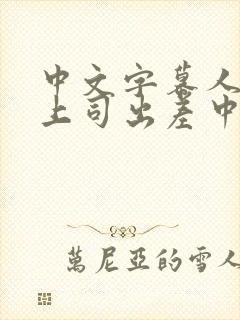 中文字幕人
上司出差中
萬尼亞的雪人